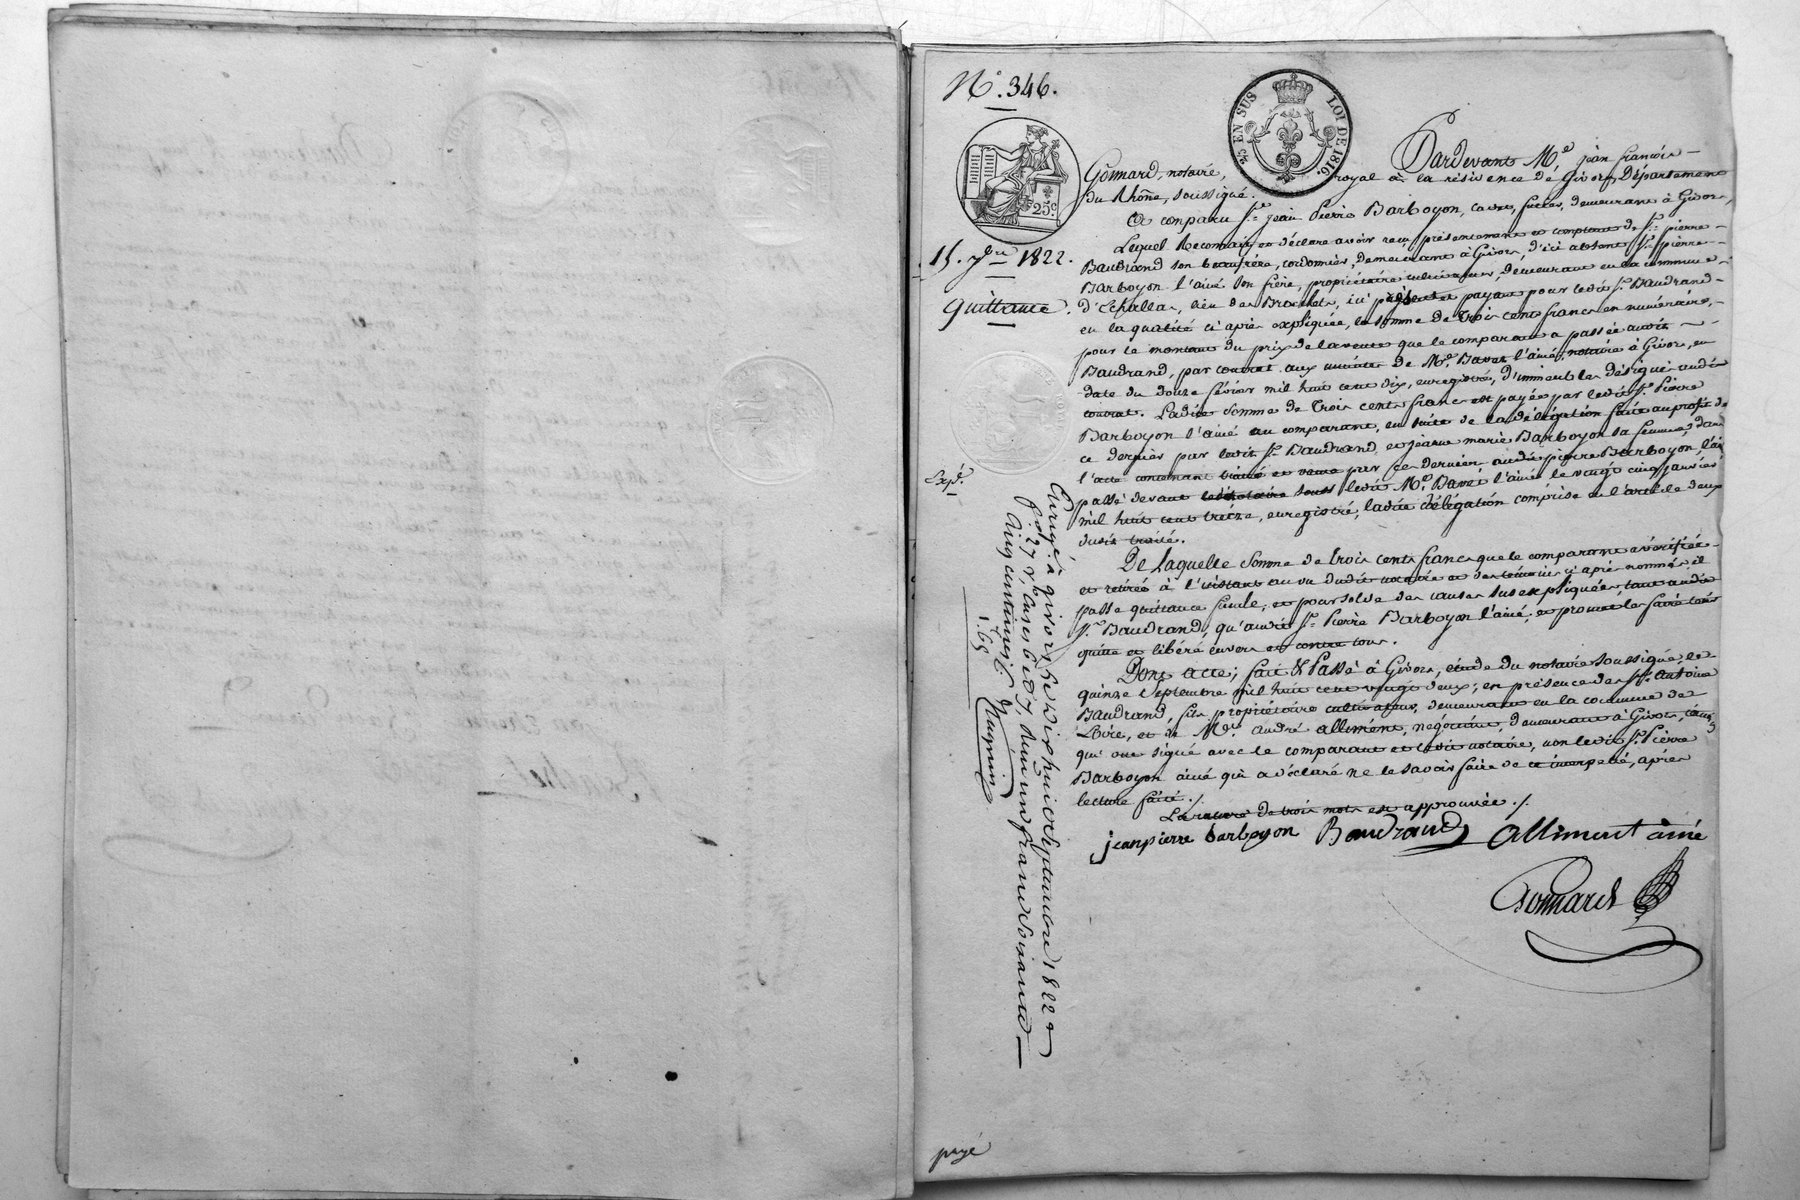 N.° 346.
25 EN SUS LOI DE 1816.
25.c
15. 7bre 1822.
Quittance.
Expé.
Pardevant Me. jean françois
Gonnard, notaire, royal à la résidence de Givors, Département
du Rhône, soussigné.
A comparu Sr. jean Pierre Barboyon, demeurant à Givors,
Lequel Reconnait et déclare avoir reçu présentement et comptant de Sr. pierre
Baudrand son beaufrère, cordonnier, demeurant à Givors, d'ici absent Sr. pierre
Barboyon l'ainé son frère, propriétaire cultivateur, demeurant en la commune
d'Echallas, lieu des ici présent et payant pour ledit Sr. Baudrand
en la qualité ci après expliquée, la somme de trois cents francs en numéraire,
pour le montant du prix de la vente que le comparant a passée audit
Baudrand, par contrat aux minutes de Me. Bavet l'ainé, notaire à Givors, en
date du douze février mil huit cent dix, enregistré, d'immeubles désignés audit
contrat. Ladite somme de trois cents francs est payée par ledit Sr. Pierre
Barboyon l'ainé au comparant, en suite de la délégation faite au profit de
ce dernier par ledit Sr. Baudrand, et jeanne marie Barboyon sa femme, dans
l'acte contenant traité et vente par ces derniers audit pierre Barboyon l'ainé
passé devant ledit Me. Bavet l'ainé le vingt cinq janvier
mil huit cent treize, enregistré, ladite délégation comprise a l'article deux
dudit traité.
De laquelle somme de trois cents francs que le comparant a vérifiée
et retirée à l'instant au vu dudit notaire et des témoins ci après nommés, il
passe quittance finale, et pour solde des causes sus expliquées, tant audit
Sr. Baudrand, qu'audit Sr. Pierre Barboyon l'ainé, et promet les faire tenir
quitte et libéré envers et contre tous.
Dont acte; fait & Passé à Givors, étude du notaire soussigné, le
quinze septembre mil huit cent vingt deux; en présence des Srs. Antoine
Baudrand, fils propriétaire cultivateur, demeurant en la commune de
Loire, et de Mr. André alliment, négociant, demeurant à Givors,
qui ont signé avec le comparant et ledit notaire, non ledit Sr. Pierre
Barboyon ainé qui a déclaré ne le savoir faire de ce interpellé, après
lecture faite ./.
La rature de trois mots est approuvée ./.
jeanpierre barboyon Baudrand Alliment ainé
Gonnard
Enregé. à givors le dix huit Septembre 1822
f.° 27 v.° cases 6 et 7, Reçu un franc soixante
cinq centimes.
1.65
payé